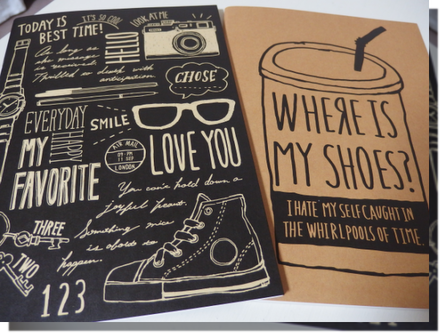 TODAY IS
BEST TIME!
IT'S SO COOL
LOOK AT ME
HELLO
As long as
the message
is received.
Thrilled to death with
anticipation.
CHOSE
EVERYDAY
HAPPY
SMILE
MY
FAVORITE
AIR MAIL
11 SEP
LONDON
LOVE YOU
You can't hold down a
joyful heart.
Something nice
is about to
happen.
THREE
TWO
1 2 3
WHERE IS
MY SHOES?
I HATE MY SELF CAUGHT IN
THE WHIRLPOOLS OF TIME.